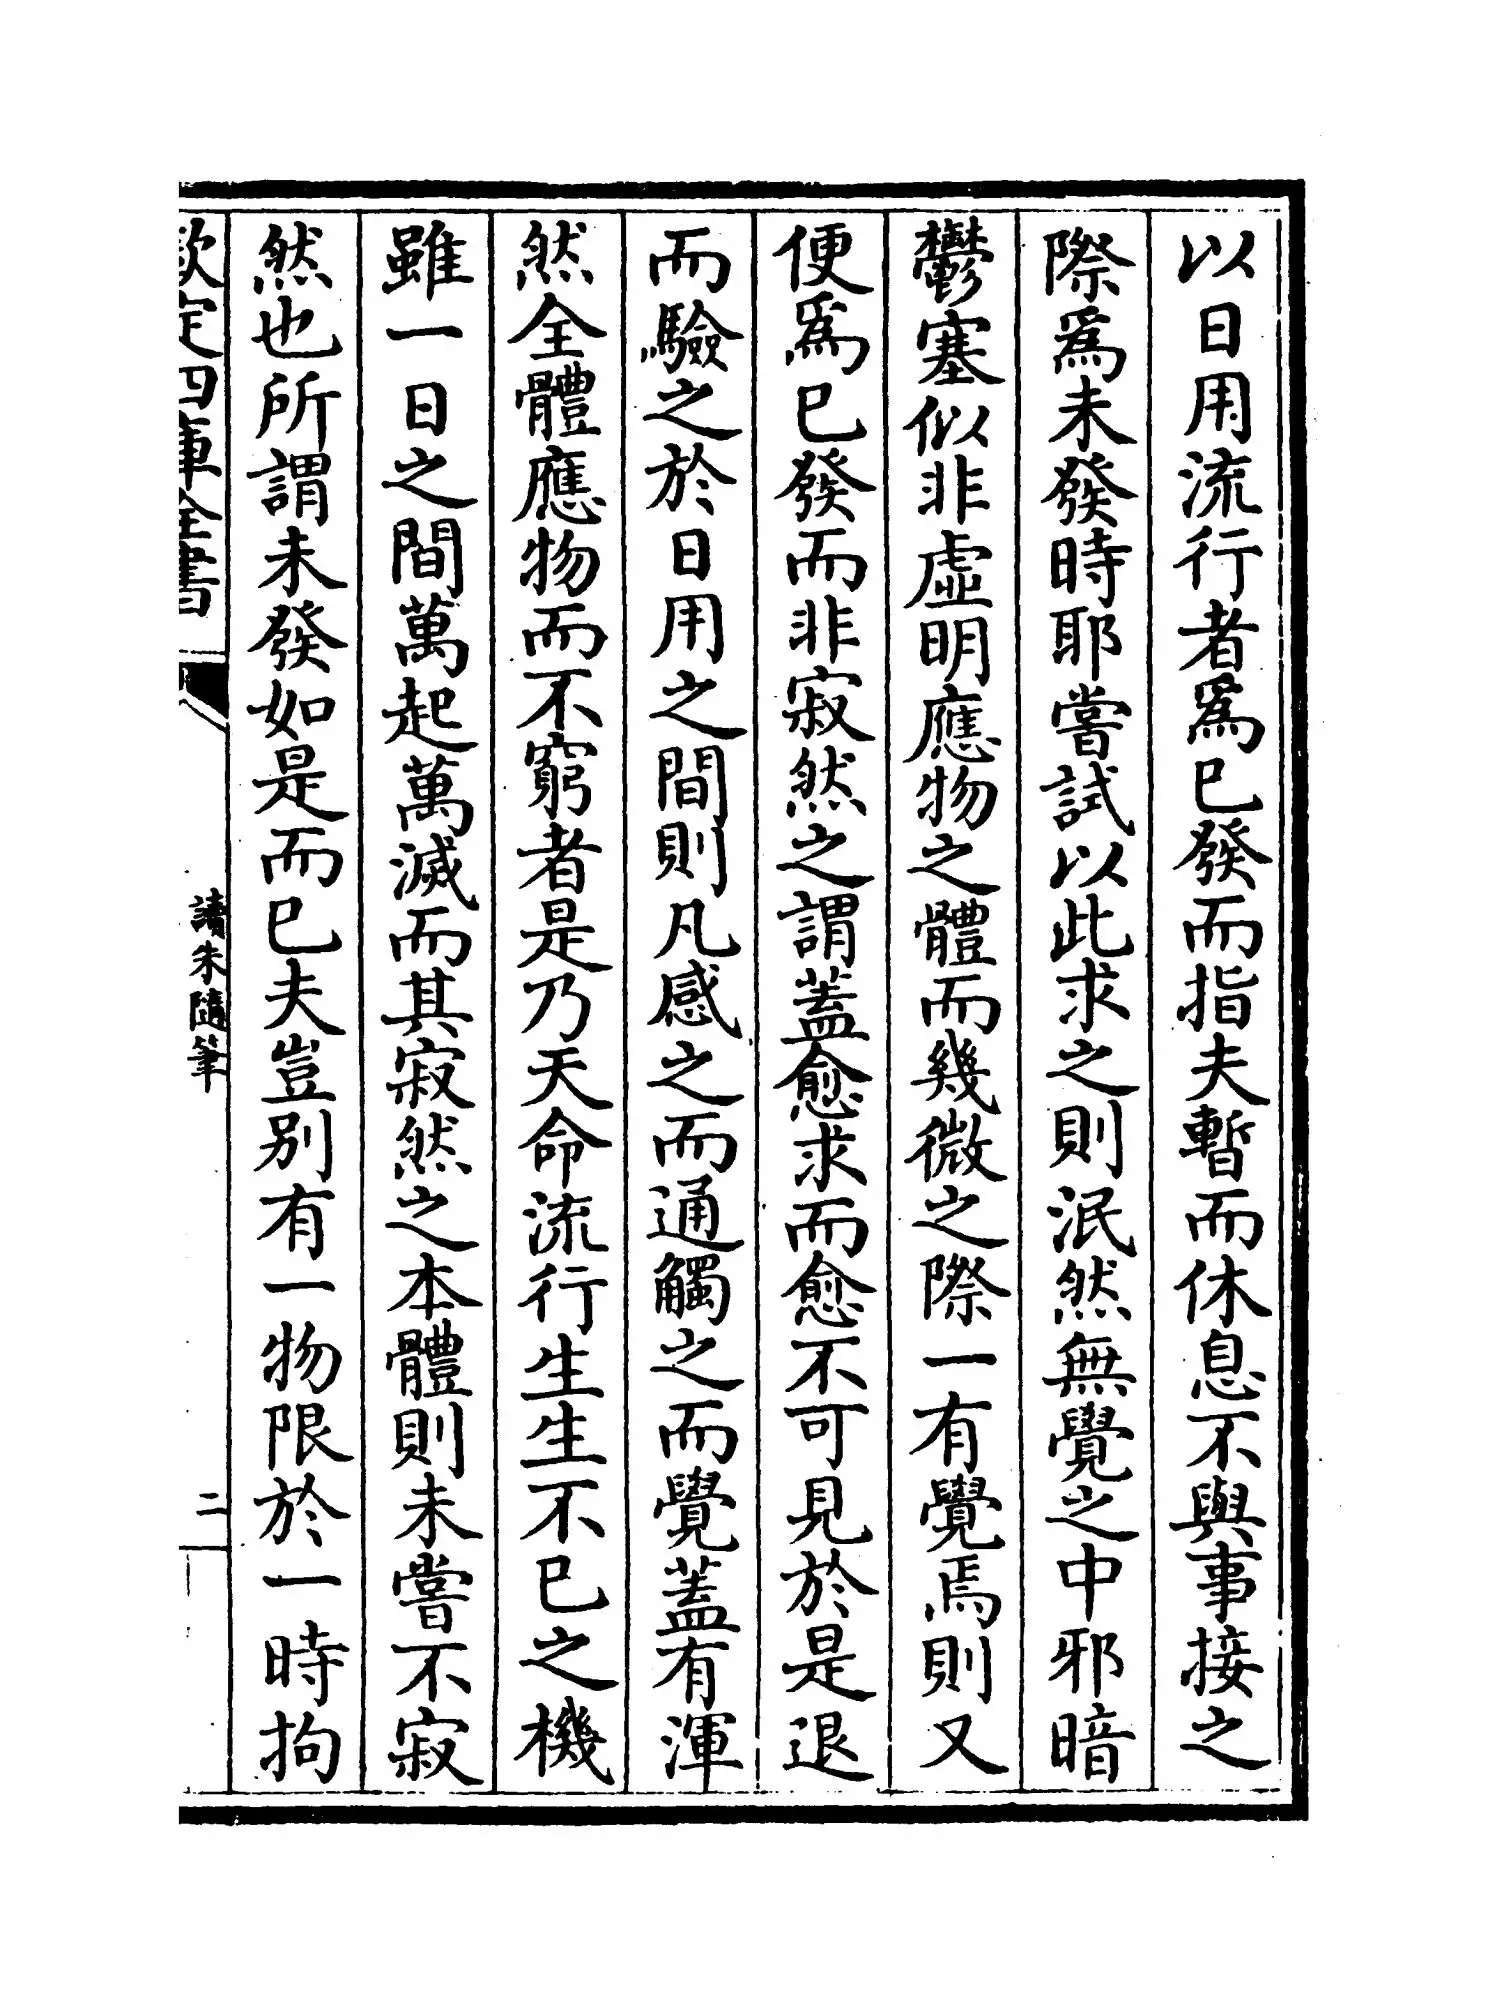 以日用流行者爲已發而指夫暫而休息不與事接之
際爲未發時耶嘗試以此求之則泯然無覺之中邪暗
鬱塞似非虛明應物之體而幾微之際一有覺焉則又
便爲已發而非寂然之謂蓋愈求而愈不可見於是退
而驗之於日用之間則凡感之而通觸之而覺蓋有渾
然全體應物而不窮者是乃天命流行生生不已之機
雖一日之間萬起萬滅而其寂然之本體則未嘗不寂
然也所謂未發如是而已夫豈別有一物限於一時拘
欽定四庫全書
讀朱隨筆
二